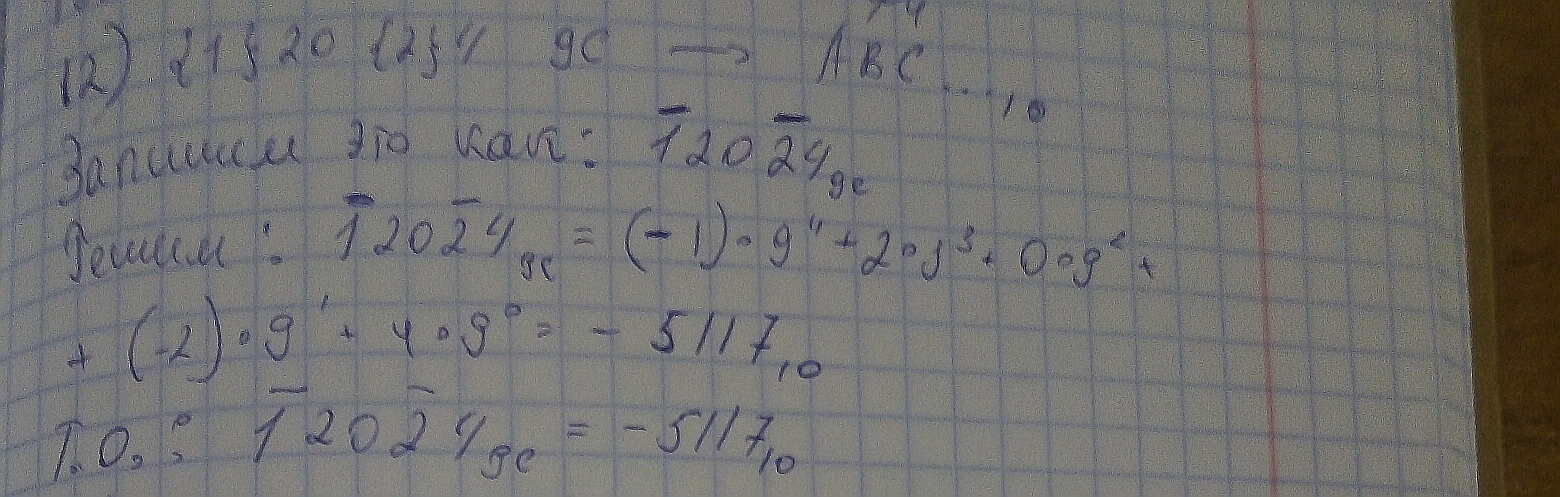 12) {1}20{2}4 9С → АВС....₁₀
Запишем это как: 1̅202̅4₉с
Решим: 1̅202̅4₉с = (-1)∘9⁴ + 2∘9³ + 0∘9² +
+ (-2)∘9¹ + 4∘9⁰ = - 5117₁₀
Т.О.: 1̅202̅4₉с = -5117₁₀